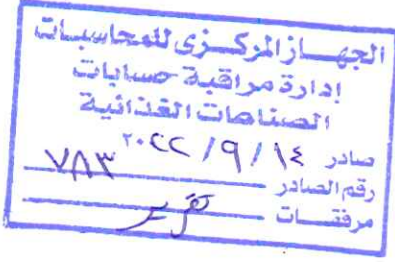 الجهاز المركزى للمحاسبات
إدارة مراقبة حسابات
الصناعات الغذائية
صادر ١٤ / ٩ / ٢٠٢٢
رقم الصادر ٧٨٣
مرفقات تقرير